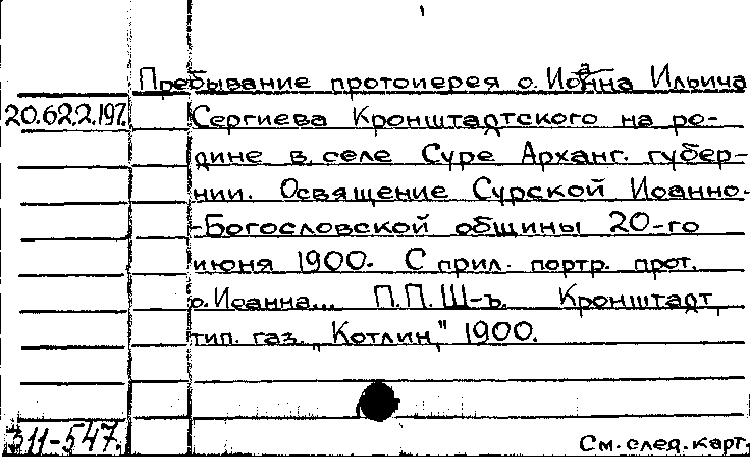 Пребывание протоиерея о. Иоанна Ильича
20.62.2.197. Сергиева Кронштадтского на ро-
дине в селе Суре Арханг. губер-
нии. Освящение Сурской Иоанно-
-Богословской общины 20-го
июня 1900. С прил. портр. прот.
о. Иоанна... П.П.Ш-ъ. Кронштадт,
тип. газ. „Котлин," 1900.
311-547.
См. след. карт.